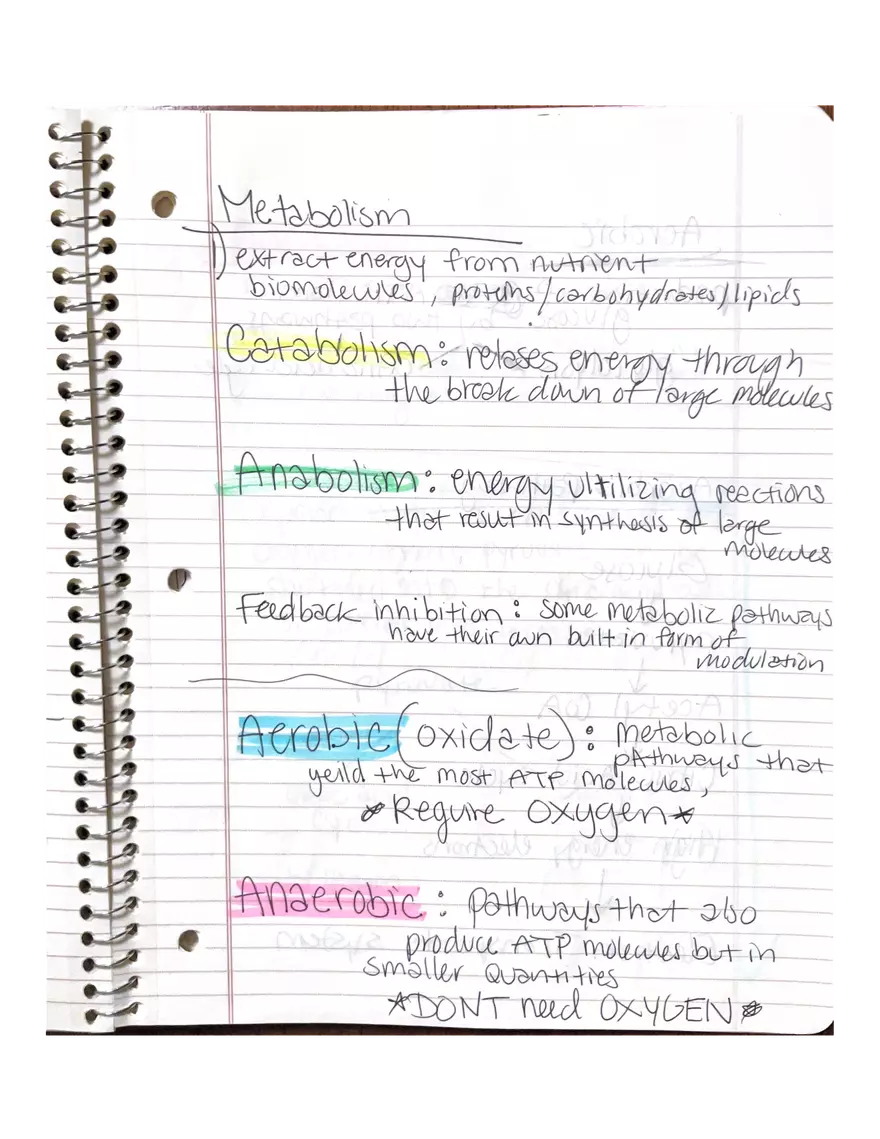 Metabolism
1) extract energy from nutrient
biomolecules, proteins/carbohydrates/lipids
Catabolism: relases energy through
the break down of large molecules
Anabolism: energy ultilizing reections
that result in synthesis of large
molecules
Feedback inhibition: some metabolic pathways
have their own built in form of
modulation
Aerobic (oxidate): metabolic
pAthways that
yeild the most ATP molecules,
*Regure OXYgen*
Anaerobic: pathways that also
produce ATP molecules but in
smaller Quantities
*DONT need OXYGEN*